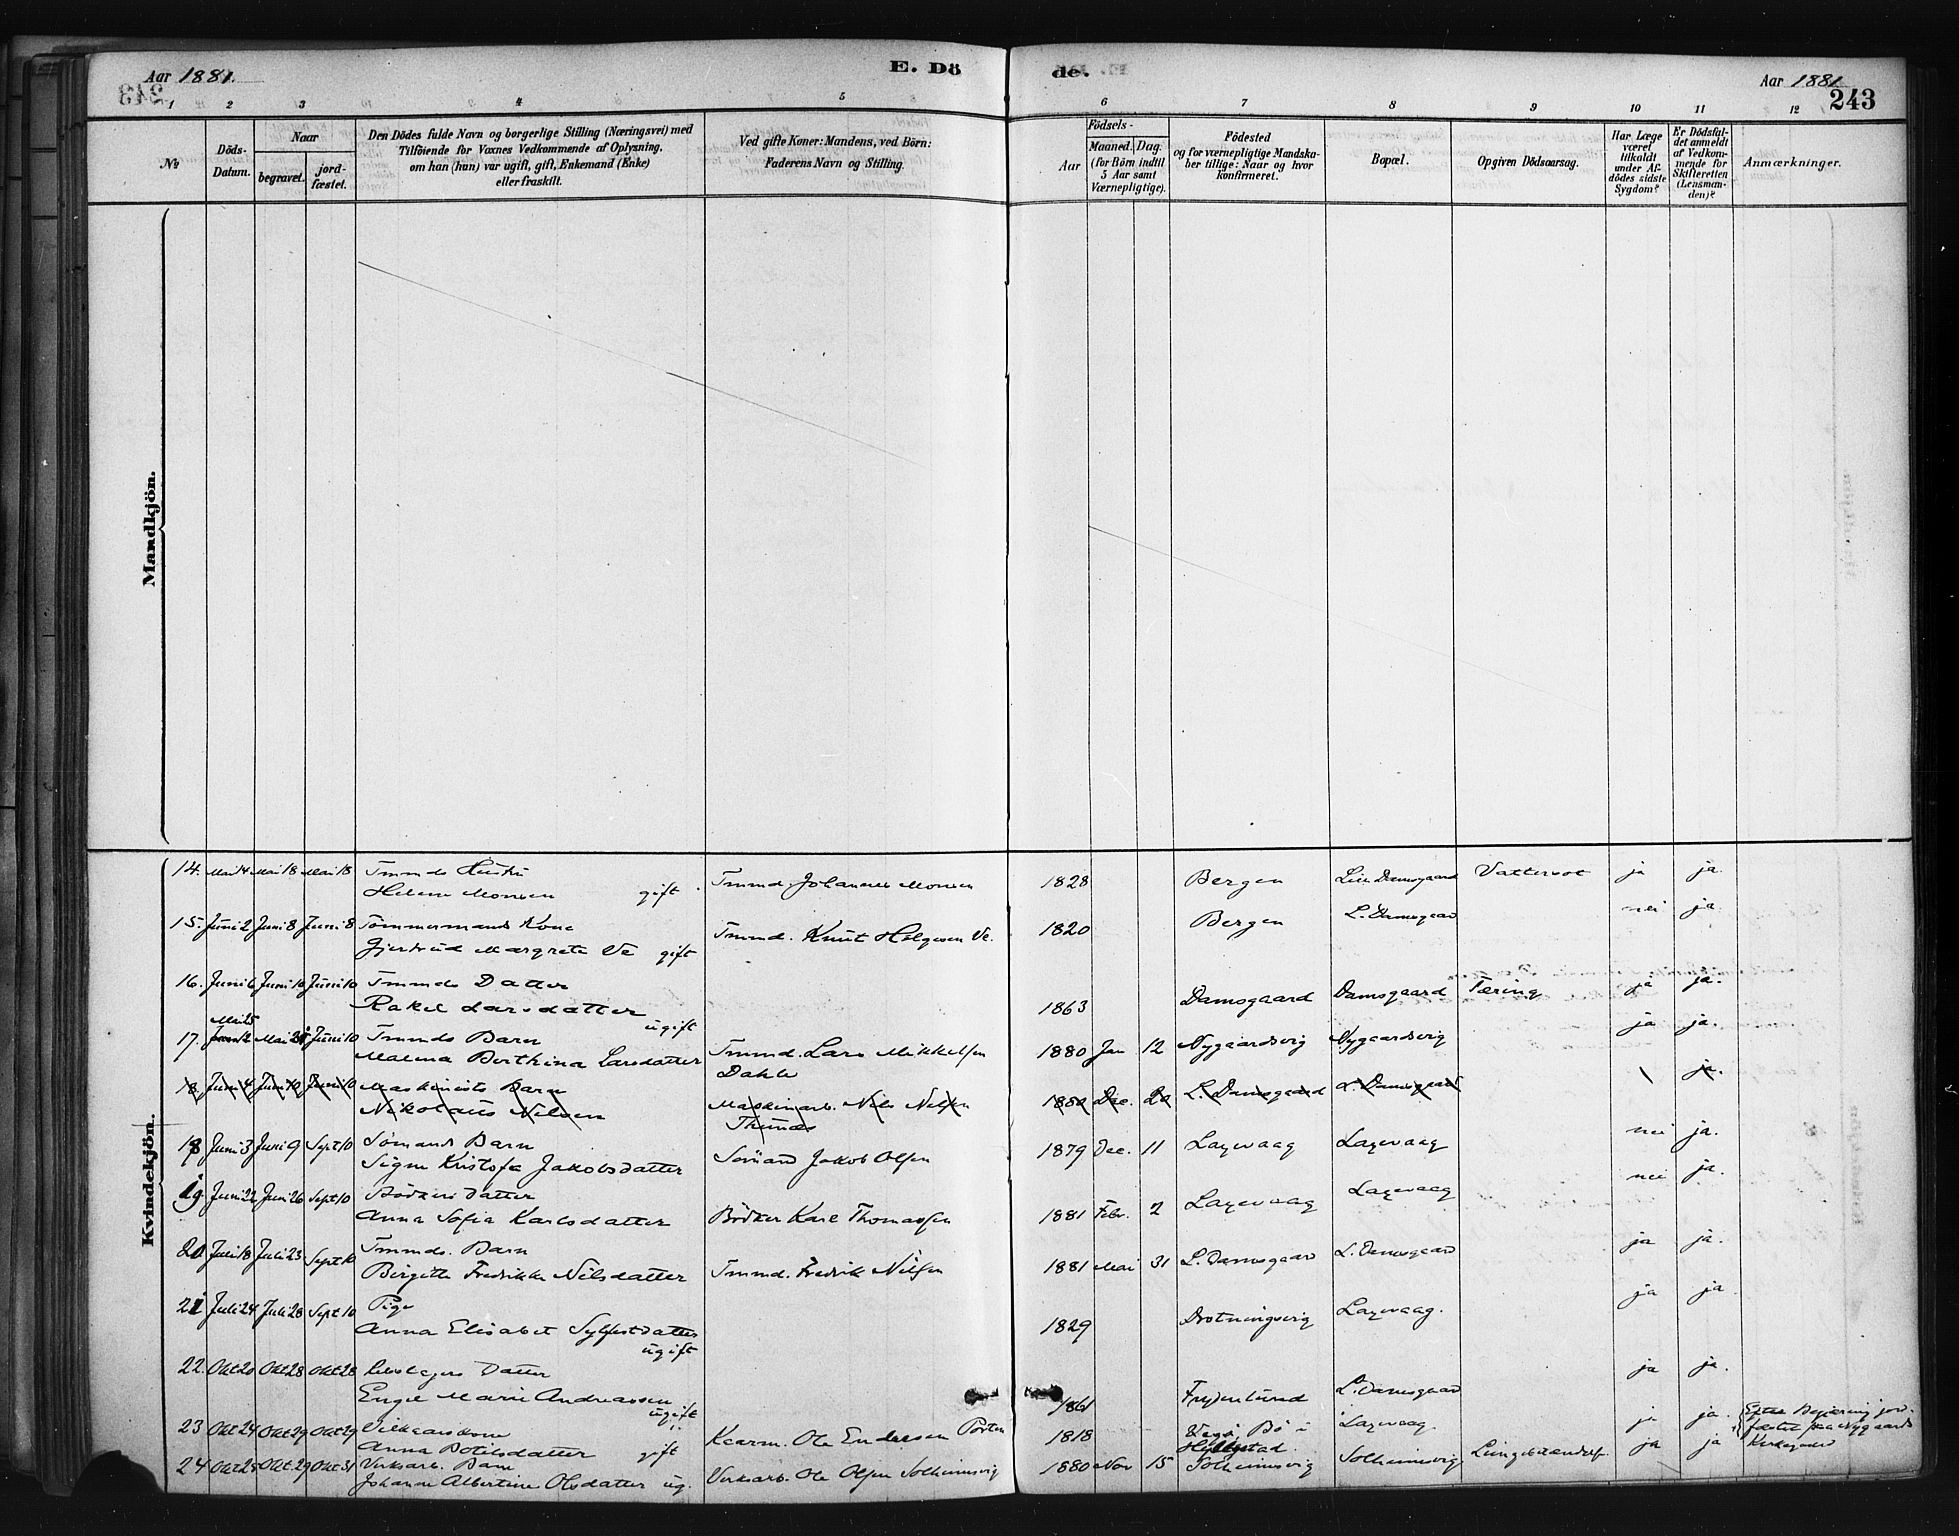 Aar 1881.
E. Dö
de.
Aar 1881
243
1 2 3 4 5 6 7 8 9 10 11 12
No
Döds-Datum.
Naar
begravet.
jord-fæstet.
Den Dödes fulde Navn og borgerlige Stilling (Næringsvei) med
Tilföiende for Voxnes Vedkommende af Oplysning,
om han (hun) var ugift, gift, Enkemand (Enke)
eller fraskilt.
Ved gifte Koner: Mandens, ved Börn:
Faderens Navn og Stilling.
Födsels-
Aar
Maaned. Dag.
(for Börn indtil
5 Aar samt
Værnepligtige).
Födested
og for værnepligtige Mandska-
ber tillige: Naar og hvor
konfirmeret.
Bopæl.
Opgiven Dödsaarsag.
Har Læge
været
tilkaldt
under Af-
dödes sidste
Sygdom?
Er Dödsfal-
det anmeldt
af Vedkom-
mende for
Skifteretten
(Lensman-
den)?
Anmærkninger.
Mandkjön.
Kvindekjön.
14. Mai 14 Mai 18 Mai 18 Tmmds Hustru
Helene Monsen gift Tmmd. Johannes Monsen 1828 Bergen Lille Damsgaard Vattersot ja ja.
15. Juni 2 Juni 8 Juni 8 Tömmermands Kone
Gjertrud Margrete Ve gift Tmmd. Knut Helgesen Ve. 1820 Bergen L. Damsgaard nei ja.
16. Juni 6 Juni 10 Juni 10 Tmmds Datter
Rakel Larsdatter ugift 1863 Damsgaard Damsgaard Tæring ja ja.
17. Mai 25 Mai Juni 10 Tmmds Barn
Malena Berthina Larsdatter Tmmd. Lars Mikkelsen
Dahle 1880 Jan 12 Nygaardsvig Nygaardsvig ja ja.
18. Juni 4 Juni 10 Juni 10 Maskinists Barn
Nikolaus Nilsen Maskinarb. Nils Nilsen
1880 Dec. 20 L. Damsgaard L. Damsgaard ja.
18 Juni 3 Juni 9 Sept 10 Sömands Barn
Signe Kristofa Jakobsdatter Sömand Jakob Olsen 1879 Dec. 11 Laxevaag Laxevaag nei ja.
19. Juni 22 Juni 26 Sept 10 Bödkers Datter
Anna Sofia Karlsdatter Bödker Karl Thomassen 1881 Febr. 2 Laxevaag Laxevaag nei ja.
20 Juli 18 Juli 23. Sept 10 Tmmds. Barn
Birgitte Fredrikke Nilsdatter Tmmd. Fredrik Nilsen 1881 Mai 31 L. Damsgaard L. Damsgaard ja ja.
21 Juli 24 Juli 28 Sept 10 Pige
Anna Elisabet Sylfestdatter
ugift 1829 Drotningsvig Laxevaag. ja ja
22. Okt 20 Okt 28 Okt 28 Datter
Engel Marie Andreassen
ugift. 1861 Frydenlund L. Damsgaard ja ja.
23 Okt 24 Okt 29 Okt 29
Anna Botilsdatter gift Kaarm. Ole Endresen Porten 1818 Bö i
Hyllestad. Laxevaag ja ja. Efter Begjæring jord-
fæstet paa Nygaards
Kirkegaard
24 Okt 25 Okt. 29 Okt 31 Verksarb. Barn
Johanne Albertine Olsdatter ug. Verksarb. Ole Olsen Solheimsvig 1880 Nov 15 Solheimsvig Solheimsvig Lungebetændelse ja ja